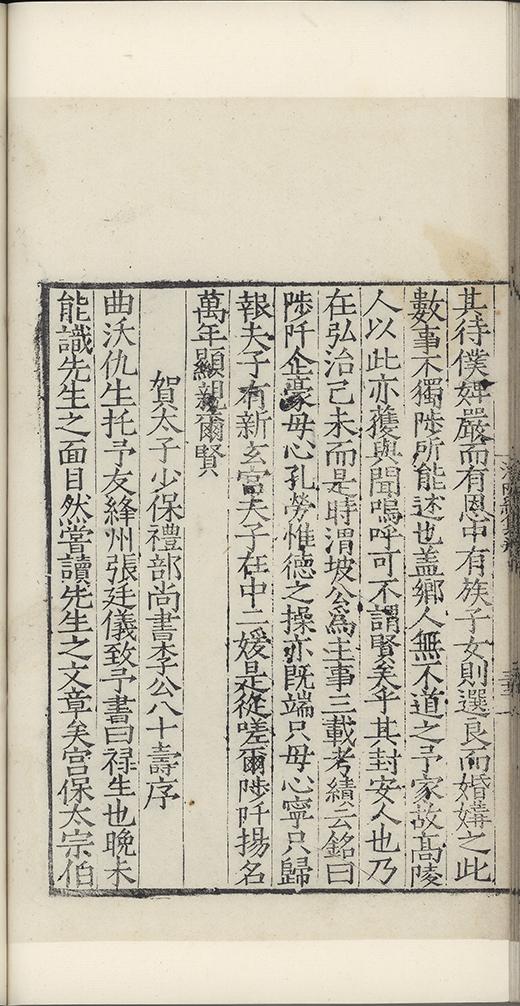 其待僕婢嚴而有恩中有族子女則選良而婚媾之此
數事不獨陟所能述也盖鄉人無不道之予家故髙陵
人以此亦獲與聞嗚呼可不謂賢矣乎其封安人也乃
在弘治己未而是時渭坡公為主事三載考績云銘曰
陟阡企豪母心孔勞惟德之操亦既端只母心寧只歸
報夫子有新玄宫夫子在中二媛是從嗟爾陟阡揚名
萬年顯親爾賢
賀太子少保禮部尚書李公八十壽序
曲沃仇生托予友絳州張廷儀致予書曰禄生也晚未
能識先生之面目然嘗讀先生之文章矣宫保太宗伯